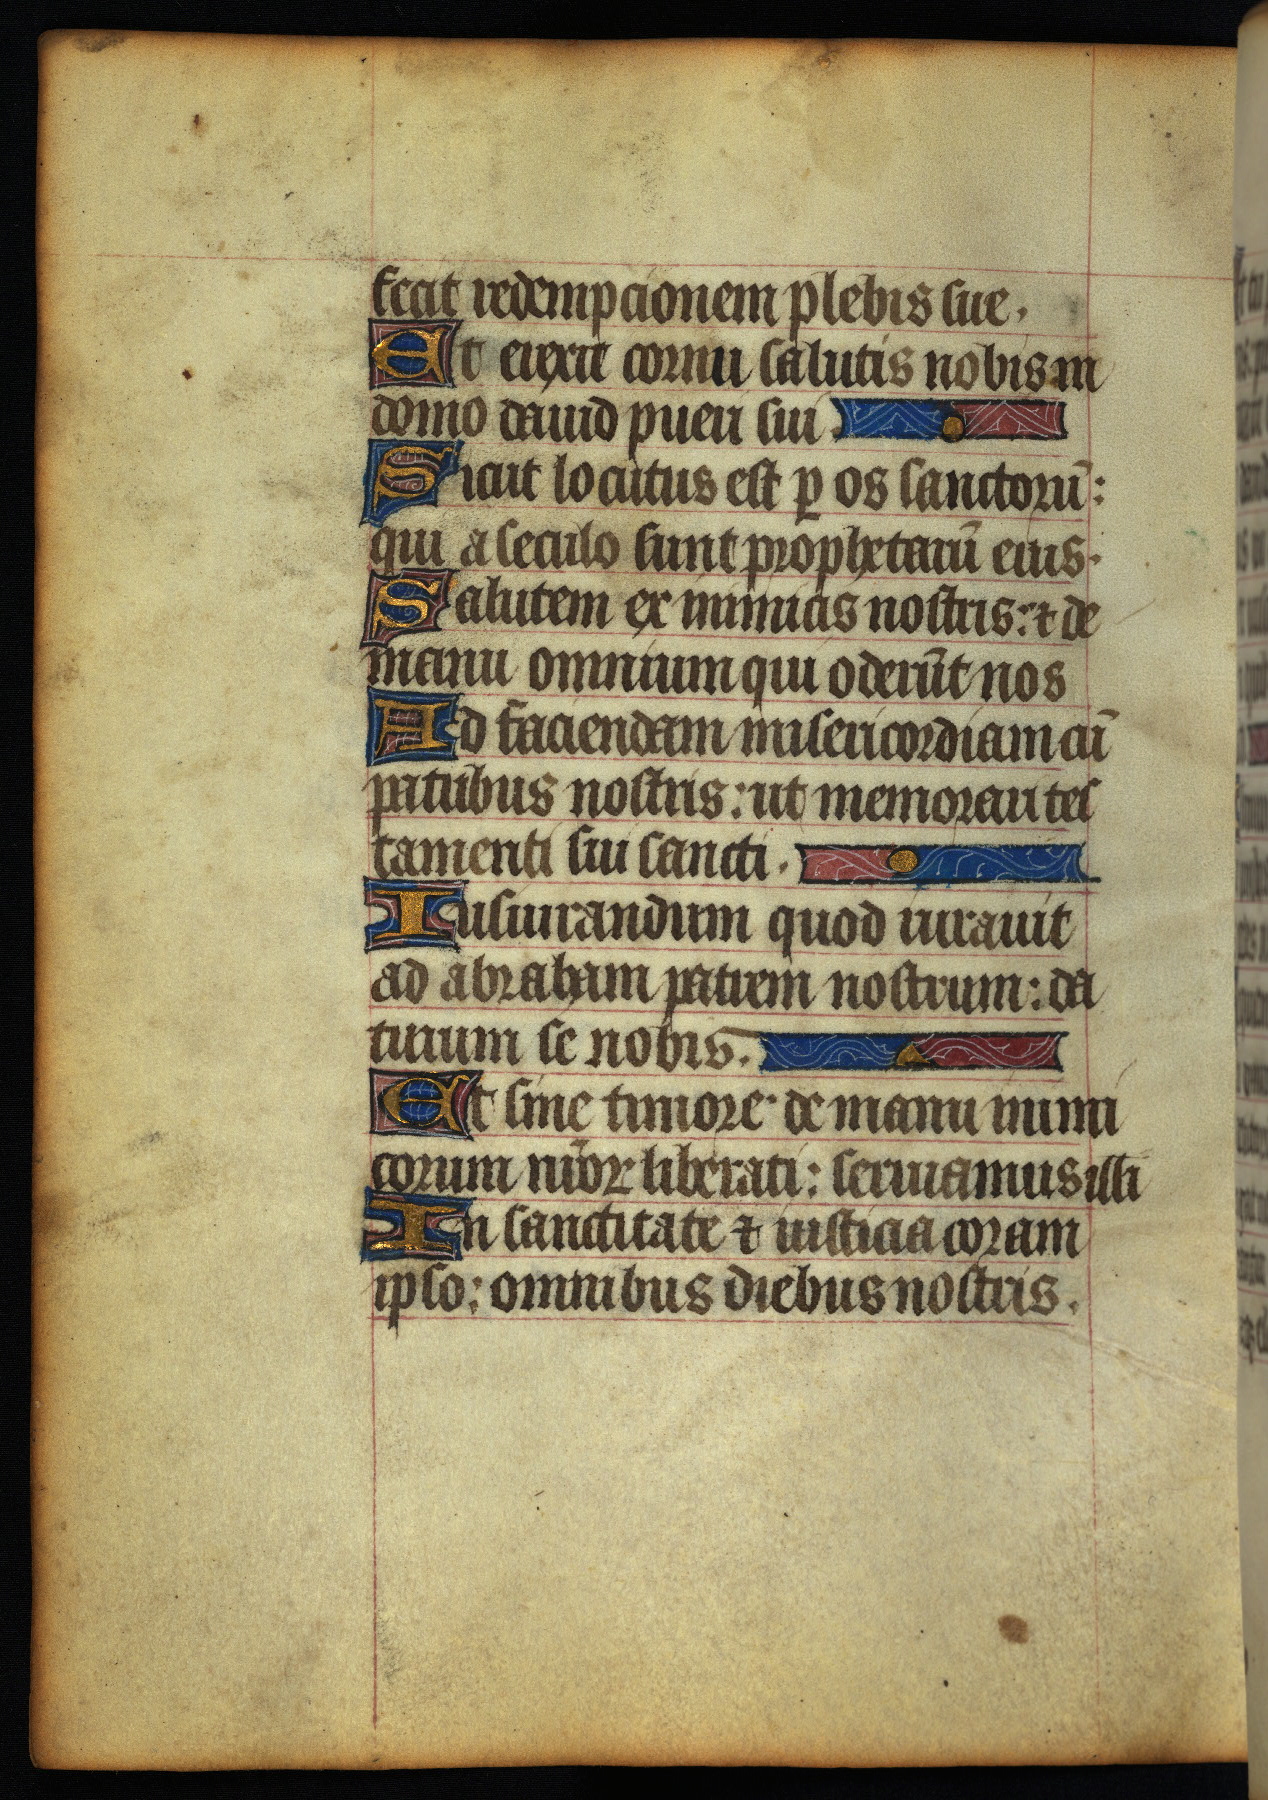 fecit redempcionem plebis sue.
Et erexit cornu salutis nobis in
domo dauid pueri sui.
Sicut locutus est ꝑ os sanctorū:
qui a seculo sunt prophetarū eius.
Salutem ex inimicis nostris: ⁊ de
manu omnium qui oderūt nos
Ad faciendam misericordiam cū
patribus nostris: ut memorari tes
tamenti sui sancti.
Iusiurandum quod iurauit
ad abraham patrem nostrum: da
turum se nobis.
Et sine timore de manu inimi
corum nr̄oꝝ liberati: seruiamus illi
In sanctitate ⁊ iusticia coram
ipso: omnibus diebus nostris.